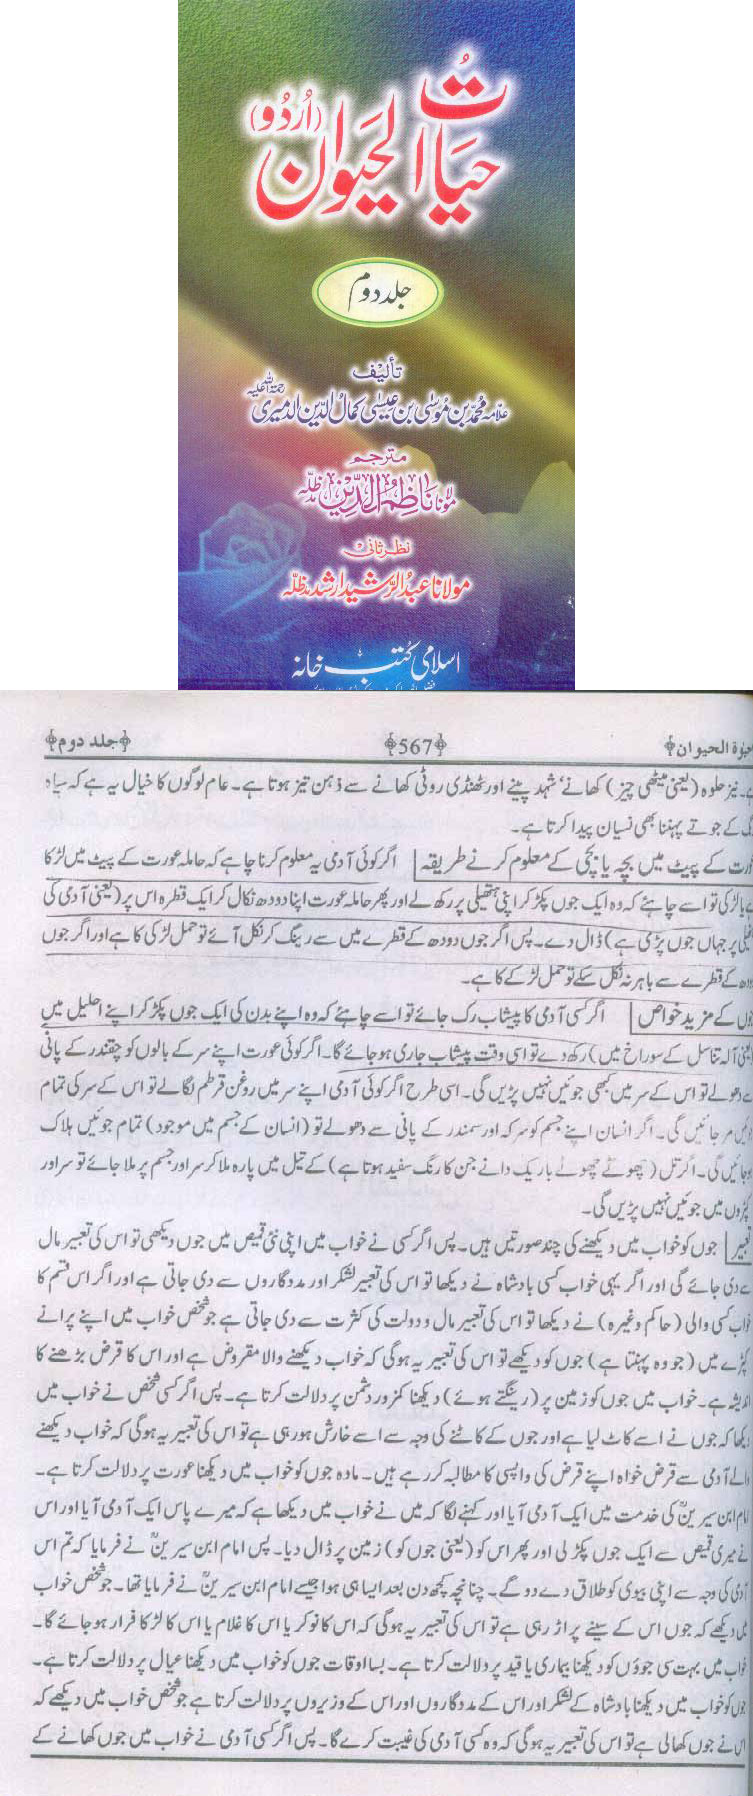 حیات الحیوان (اُردُو)
جلد دوم
تألیف
علامہ محمد بن موسٰی بن عیسٰی کمال الدین الدمیری رحمۃ اللہ علیہ
مترجم
مولانا ناظم الدین مدظلہ
نظرثانی
مولانا عبد الرشید ارشد مدظلہ
اسلامی کتب خانہ
حیوۃ الحیوان ﴿567﴾ ﴿جلد دوم﴾
ہے۔ نیز حلوہ (یعنی میٹھی چیز) کھانے، شہد پینے اور ٹھنڈی روٹی کھانے سے ذہن تیز ہوتا ہے۔ عام لوگوں کا خیال یہ ہے کہ سیاہ
کے جوتے پہننا بھی نسیان پیدا کرتا ہے۔
عورت کے پیٹ میں بچہ یا بچی کے معلوم کرنے طریقہ اگر کوئی آدمی یہ معلوم کرنا چاہے کہ حاملہ عورت کے پیٹ میں لڑکا
ہے یا لڑکی تو اسے چاہئے کہ وہ ایک جوں پکڑ کر اپنی ہتھیلی پر رکھ لے اور پھر حاملہ عورت اپنا دودھ نکال کر ایک قطرہ اس پر (یعنی آدمی کی
ہتھیلی پر جہاں جوں پڑی ہے) ڈال دے۔ پس اگر جوں دودھ کے قطرے میں سے رینگ کر نکل آئے تو حمل لڑکی کا ہے اور اگر جوں
دودھ کے قطرے سے باہر نہ نکل سکے تو حمل لڑکے کا ہے۔
جوں کے مزید خواص اگر کسی آدمی کا پیشاب رک جائے تو اسے چاہئے کہ وہ اپنے بدن کی ایک جوں پکڑ کر اپنے احلیل میں
(یعنی آلہ تناسل کے سوراخ میں) رکھ دے تو اسی وقت پیشاب جاری ہو جائے گا۔ اگر کوئی عورت اپنے سر کے بالوں کو چقندر کے پانی
سے دھو لے تو اس کے سر میں کبھی جوئیں نہیں پڑیں گی۔ اسی طرح اگر کوئی آدمی اپنے سر میں روغن قرطم لگا لے تو اس کے سر کی تمام
جوئیں مر جائیں گی۔ اگر انسان اپنے جسم کو سرکہ اور سمندر کے پانی سے دھو لے تو (انسان کے جسم میں موجود) تمام جوئیں ہلاک
ہو جائیں گی۔ اگر تل (چھوٹے چھوٹے باریک دانے جن کا رنگ سفید ہوتا ہے) کے تیل میں پارہ ملا کر سر اور جسم پر ملا جائے تو سر اور
کپڑوں میں جوئیں نہیں پڑیں گی۔
تعبیر جوں کو خواب میں دیکھنے کی چند صورتیں ہیں۔ پس اگر کسی نے خواب میں اپنی نئی قمیص میں جوں دیکھی تو اس کی تعبیر مال
سے دی جائے گی اور اگر یہی خواب کسی بادشاہ نے دیکھا تو اس کی تعبیر لشکر اور مددگاروں سے دی جاتی ہے اور اگر اس قسم کا
خواب کسی والی (حاکم وغیرہ) نے دیکھا تو اس کی تعبیر مال و دولت کی کثرت سے دی جاتی ہے جو شخص خواب میں اپنے پرانے
کپڑے میں (جو وہ پہنتا ہے) جوں کو دیکھے تو اس کی تعبیر یہ ہوگی کہ خواب دیکھنے والا مقروض ہے اور اس کا قرض بڑھنے کا
اندیشہ ہے۔ خواب میں جوں کو زمین پر (رینگتے ہوئے) دیکھنا کمزور دشمن پر دلالت کرتا ہے۔ پس اگر کسی شخص نے خواب میں
دیکھا کہ جوں نے اسے کاٹ لیا ہے اور جوں کے کاٹنے کی وجہ سے اسے خارش ہو رہی ہے تو اس کی تعبیر یہ ہوگی کہ خواب دیکھنے
والے آدمی سے قرض خواہ اپنے قرض کی واپسی کا مطالبہ کر رہے ہیں۔ مادہ جوں کو خواب میں دیکھنا عورت پر دلالت کرتا ہے۔
امام ابن سیرینؒ کی خدمت میں ایک آدمی آیا اور کہنے لگا کہ میں نے خواب میں دیکھا ہے کہ میرے پاس ایک آدمی آیا اور اس
نے میری قمیص سے ایک جوں پکڑ لی اور پھر اس کو (یعنی جوں کو) زمین پر ڈال دیا۔ پس امام ابن سیرینؒ نے فرمایا کہ تم اس
آدمی کی وجہ سے اپنی بیوی کو طلاق دے دو گے۔ چنانچہ کچھ دن بعد ایسا ہی ہوا جیسے امام ابن سیرینؒ نے فرمایا تھا۔ جو شخص خواب
میں دیکھے کہ جوں اس کے سینے پر اڑ رہی ہے تو اس کی تعبیر یہ ہوگی کہ اس کا نوکر یا اس کا غلام یا اس کا لڑکا فرار ہو جائے گا۔
خواب میں بہت سی جوؤں کو دیکھنا بیماری یا قید پر دلالت کرتا ہے۔ بسا اوقات جوں کو خواب میں دیکھنا عیال پر دلالت کرتا ہے۔
جوں کو خواب میں دیکھنا بادشاہ کے لشکر اور اس کے مددگاروں اور اس کے وزیروں پر دلالت کرتا ہے جو شخص خواب میں دیکھے کہ
اس نے جوں کھالی ہے تو اس کی تعبیر یہ ہوگی کہ وہ کسی آدمی کی غیبت کرے گا۔ پس اگر کسی آدمی نے خواب میں جوں کھانے کے